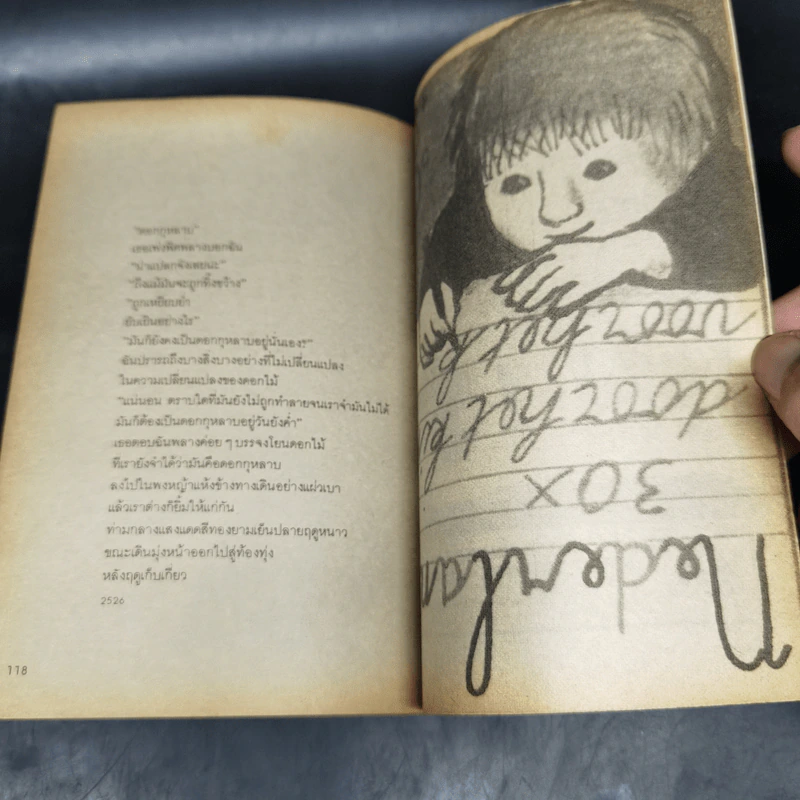 "ดอกกุหลาบ"
เธอเพ่งพิศพลางบอกฉัน
"น่าแปลกจังเลยนะ"
"ถึงแม้มันจะถูกทิ้งขว้าง"
"ถูกเหยียบย่ำ
ยับเยินอย่างไร"
"มันก็ยังคงเป็นดอกกุหลาบอยู่นั่นเอง?"
ฉันปรารถถึงบางสิ่งบางอย่างที่ไม่เปลี่ยนแปลง
ในความเปลี่ยนแปลงของดอกไม้
"แน่นอน ตราบใดที่มันยังไม่ถูกทำลายจนเราจำมันไม่ได้
มันก็ต้องเป็นดอกกุหลาบอยู่วันยังค่ำ"
เธอตอบฉันพลางค่อย ๆ บรรจงโยนดอกไม้
ที่เรายังจำได้ว่ามันคือดอกกุหลาบ
ลงไปในพงหญ้าแห้งข้างทางเดินอย่างแผ่วเบา
แล้วเราต่างก็ยิ้มให้แก่กัน
ท่ามกลางแสงแดดสีทองยามเย็นปลายฤดูหนาว
ขณะเดินมุ่งหน้าออกไปสู่ท้องทุ่ง
หลังฤดูเก็บเกี่ยว
2526
118
voor het k
door het ki
30x
Nederlan